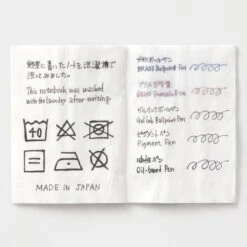 実際に書いたノートを洗濯機で
洗ってみました。
This notebook was washed
with the laundry after writing.
40
MADE IN JAPAN
ブラスボールペン
BRASS Ballpoint Pen
ゲルインクボールペン
Gel Ink Ballpoint Pen
ピグメントペン
Pigment Pen
油性ペン
Oil-based Pen